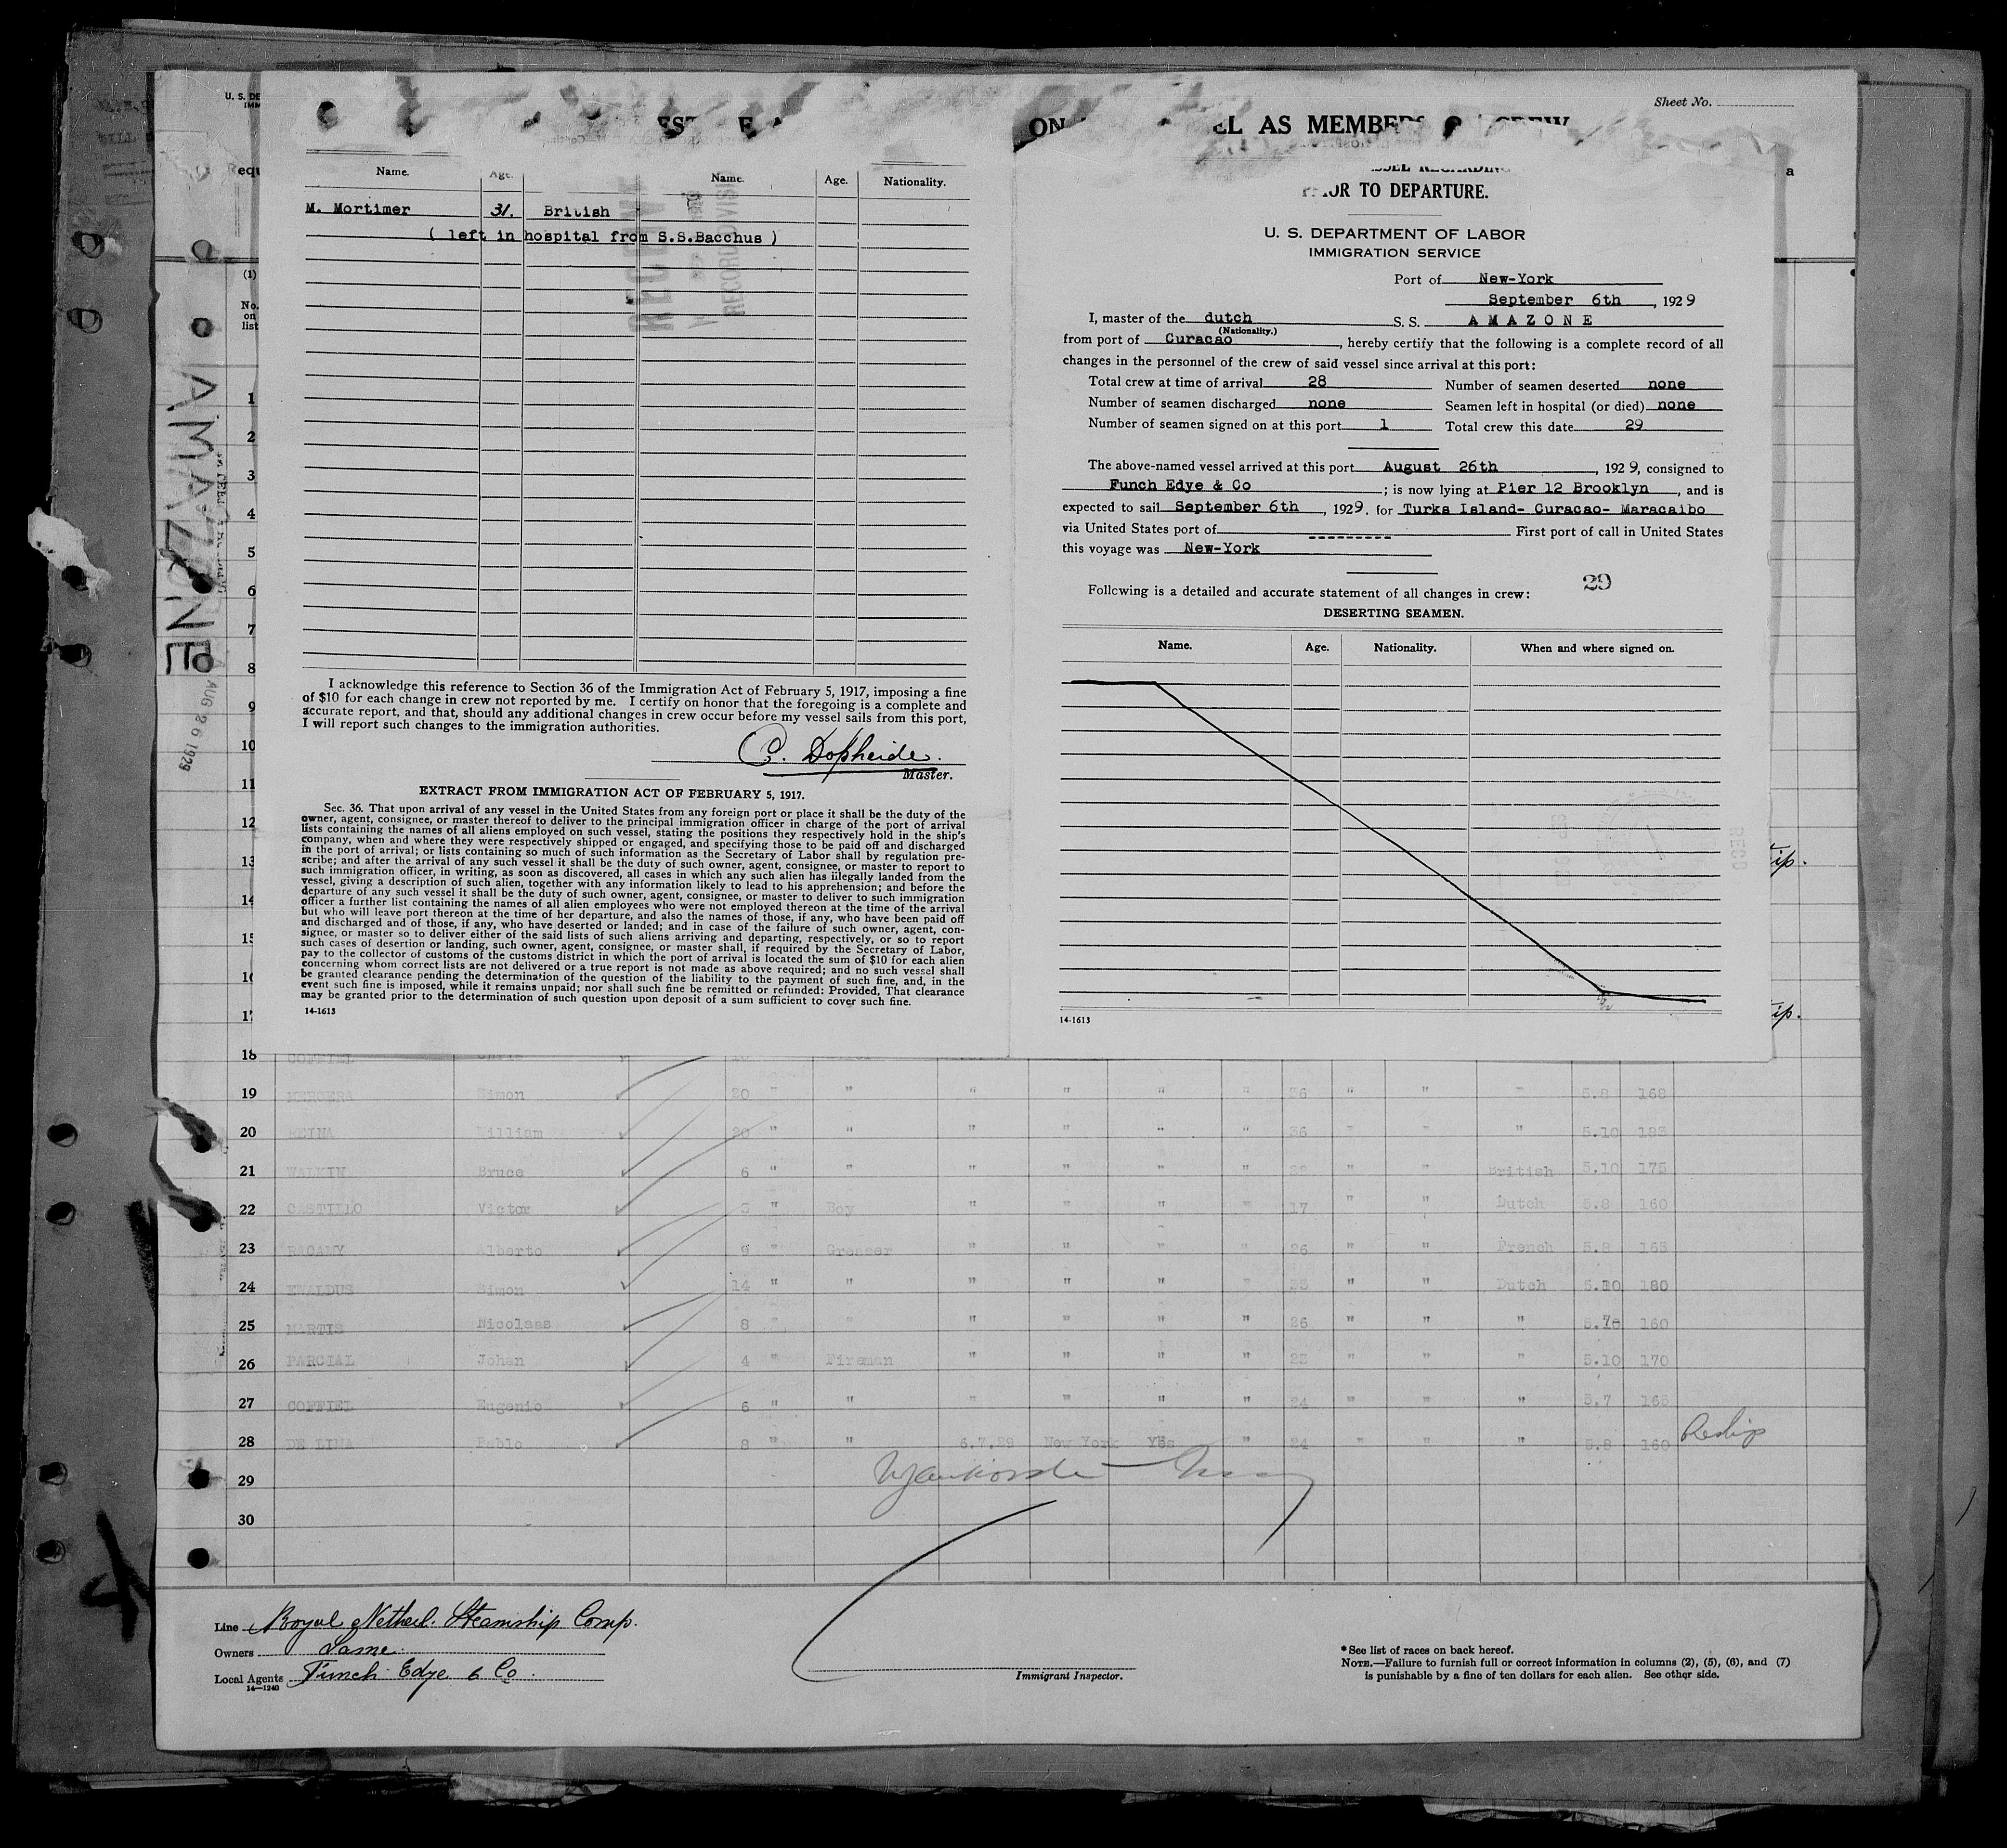 Sheet No.
U. S. DE
IMM
ON EL AS MEMBERS CREW
Name. Age. Name. Age. Nationality.
M. Mortimer 31. British
( left in hospital from S.S.Bacchus )
RECORD DIVISI
I acknowledge this reference to Section 36 of the Immigration Act of February 5, 1917, imposing a fine
of $10 for each change in crew not reported by me. I certify on honor that the foregoing is a complete and
accurate report, and that, should any additional changes in crew occur before my vessel sails from this port,
I will report such changes to the immigration authorities.
C. Dopheide.
Master.
EXTRACT FROM IMMIGRATION ACT OF FEBRUARY 5, 1917.
Sec. 36. That upon arrival of any vessel in the United States from any foreign port or place it shall be the duty of the
owner, agent, consignee, or master thereof to deliver to the principal immigration officer in charge of the port of arrival
lists containing the names of all aliens employed on such vessel, stating the positions they respectively hold in the ship's
company, when and where they were respectively shipped or engaged, and specifying those to be paid off and discharged
in the port of arrival; or lists containing so much of such information as the Secretary of Labor shall by regulation pre-
scribe; and after the arrival of any such vessel it shall be the duty of such owner, agent, consignee, or master to report to
such immigration officer, in writing, as soon as discovered, all cases in which any such alien has illegally landed from the
vessel, giving a description of such alien, together with any information likely to lead to his apprehension; and before the
departure of any such vessel it shall be the duty of such owner, agent, consignee, or master to deliver to such immigration
officer a further list containing the names of all alien employees who were not employed thereon at the time of the arrival
but who will leave port thereon at the time of her departure, and also the names of those, if any, who have been paid off
and discharged and of those, if any, who have deserted or landed; and in case of the failure of such owner, agent, con-
signee, or master so to deliver either of the said lists of such aliens arriving and departing, respectively, or so to report
such cases of desertion or landing, such owner, agent, consignee, or master shall, if required by the Secretary of Labor,
pay to the collector of customs of the customs district in which the port of arrival is located the sum of $10 for each alien
concerning whom correct lists are not delivered or a true report is not made as above required; and no such vessel shall
be granted clearance pending the determination of the question of the liability to the payment of such fine, and, in the
event such fine is imposed, while it remains unpaid; nor shall such fine be remitted or refunded: Provided, That clearance
may be granted prior to the determination of such question upon deposit of a sum sufficient to cover such fine.
14-1613
PRIOR TO DEPARTURE.
U. S. DEPARTMENT OF LABOR
IMMIGRATION SERVICE
Port of New-York
September 6th, 1929
I, master of the dutch S. S. AMAZONE
(Nationality.)
from port of Curacao, hereby certify that the following is a complete record of all
changes in the personnel of the crew of said vessel since arrival at this port:
Total crew at time of arrival 28 Number of seamen deserted none
Number of seamen discharged none Seamen left in hospital (or died) none
Number of seamen signed on at this port 1 Total crew this date 29
The above-named vessel arrived at this port August 26th, 1929, consigned to
Funch Edye & Co; is now lying at Pier 12 Brooklyn, and is
expected to sail September 6th, 1929. for Turks Island- Curacao- Maracaibo
via United States port of --------- First port of call in United States
this voyage was New-York
29
Following is a detailed and accurate statement of all changes in crew:
DESERTING SEAMEN.
Name. Age. Nationality. When and where signed on.
14-1613
AMAZONE
AUG 26 1929
(1)
No.
on
list
1
2
3
4
5
6
7
8
9
10
11
12
13
14
15
16
17
18 COFFIEL
19 MERCERA Simon 20 " " " " " " 36 " " " 5.8 168
20 REINA William 20 " " " " " " 36 " " " 5.10 183
21 WALKIN Bruce 6 " " " " " " " " British 5.10 175
22 CASTILLO Victor 3 " Boy " " " " 17 " " Dutch 5.8 160
23 Alberto 9 " Greaser " " " " 26 " " French 5.8 165
24 EWALDUS Simon 14 " " " " " " 33 " " Dutch 5.10 180
25 MARTIS Nicolaas 8 " " " " " " 26 " " " 160
26 PARCIAL Johan 4 " Fireman " " " " 23 " " " 5.10 170
27 COFFIEL Eugenio 6 " " " " " " 24 " " " 5.7 165
28 DE LIMA Pablo 8 " " 6.7.29 New York Yes " 24 " " " 5.8 160 Reship
29
30
Line Royal Netherl. Steamship Comp.
Owners Same.
Local Agents Funch Edye & Co.
14—1240
Immigrant Inspector.
*See list of races on back hereof.
NOTE.—Failure to furnish full or correct information in columns (2), (5), (6), and (7)
is punishable by a fine of ten dollars for each alien. See other side.